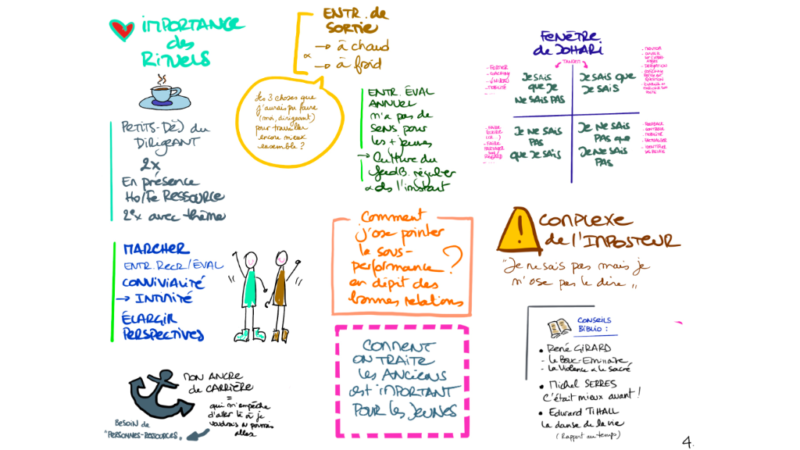 IMPORTANCE
des
RITUELS
PETITS-DÈJ du
DIRIGEANT
2x
En présence
Ho/Fe RESSOURCE
2ex avec thème
MARCHER
ENTR RECR/ÉVAL
CONVIVIALITÉ
→ INTIMITÉ
ÉLARGIR
PERSPECTIVES
MON ANCRE
de CARRIÈRE
=
qui m'empêche
d'aller là où je
voudrais ou pourrais
aller
BESOIN de
"PERSONNES-RESSOURCES"
ENTR. de
SORTIE
→ à chaud
→ à froid
les 3 choses que
j'aurais pu faire
(moi, dirigeant)
pour travailler
encore mieux
ensemble ?
ENTR. ÉVAL
ANNUEL
n'a pas de
sens pour
les + jeunes
→ Culture du
feedB. régulier
de l'instant
Comment
j'ose pointer
la sous-
performance
en dépit des
bonnes relations
?
COMMENT
ON TRAITE
les ANCIENS
est IMPORTANT
POUR les JEUNES
FENÊTRE
de JOHARI
JE SAIS
que JE
NE SAIS PAS
JE SAIS QUE
JE SAIS
JE NE SAIS
PAS
QUE JE SAIS
JE NE SAIS
PAS que
JE NE SAIS
PAS
COMPLEXE
de l'IMPOSTEUR
"Je ne sais pas mais je
n'ose pas le dire"
CONSEILS
BIBLIO :
• René GIRARD
- Le Bouc-Émissaire
- La Violence et le Sacré
• Michel SERRES
C'était mieux avant !
• Edward T. HALL
la danse de la vie
(Rapport au temps)
4.